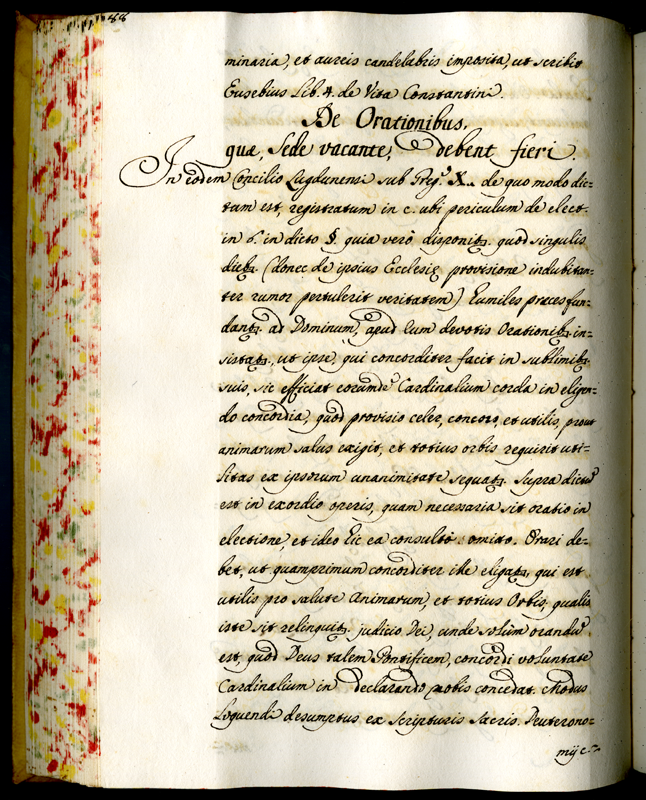 88
minaria, et aureis candelabris imposita, ut scribit
Eusebius Lib. 4. de Vita Constantini.
De Orationibus,
quæ, Sede vacante, debent fieri.
In eodem Concilio Lugdunensi sub Greg.º X. de quo modo dic=
tum est, registratum in c. ubi periculum de elect.
in 6. in dicto §. quia verò disponitꝫ. quod singulis
diebꝫ. (donec de ipsius Ecclesię provisione indubitan=
ter rumor pertulerit veritatem) humiles preces fun=
dantꝫ. ad Dominum, apud eum devotis Orationibꝫ in=
sistatꝫ., ut ipse, qui concorditer facit in sublimibꝫ
suis, sic efficiat eorumdē Cardinalium corda in eligen=
do concordia, quòd provisio celer, concors, et utilis, prout
animarum salus exigit, et totius orbis requirit uti=
litas ex ipsorum unanimitate sequatꝫ. Supra dictū
est in exordio operis, quam necessaria sit oratio in
electione, et ideo hic ea consultò omitto. Orari de=
bet, ut quamprimum concorditer ille eligatꝫ, qui est
utilis pro salute Animarum, et totius Orbis, qualis
iste sit relinquitꝫ. judicio Dei, unde solùm orandū
est, quod Deus talem Pontificem, concordi voluntate
Cardinalium in declarando nobis concedat. Modus
Loquendi desumptus ex Scripturis Sacris. Deuterono=
mij c.